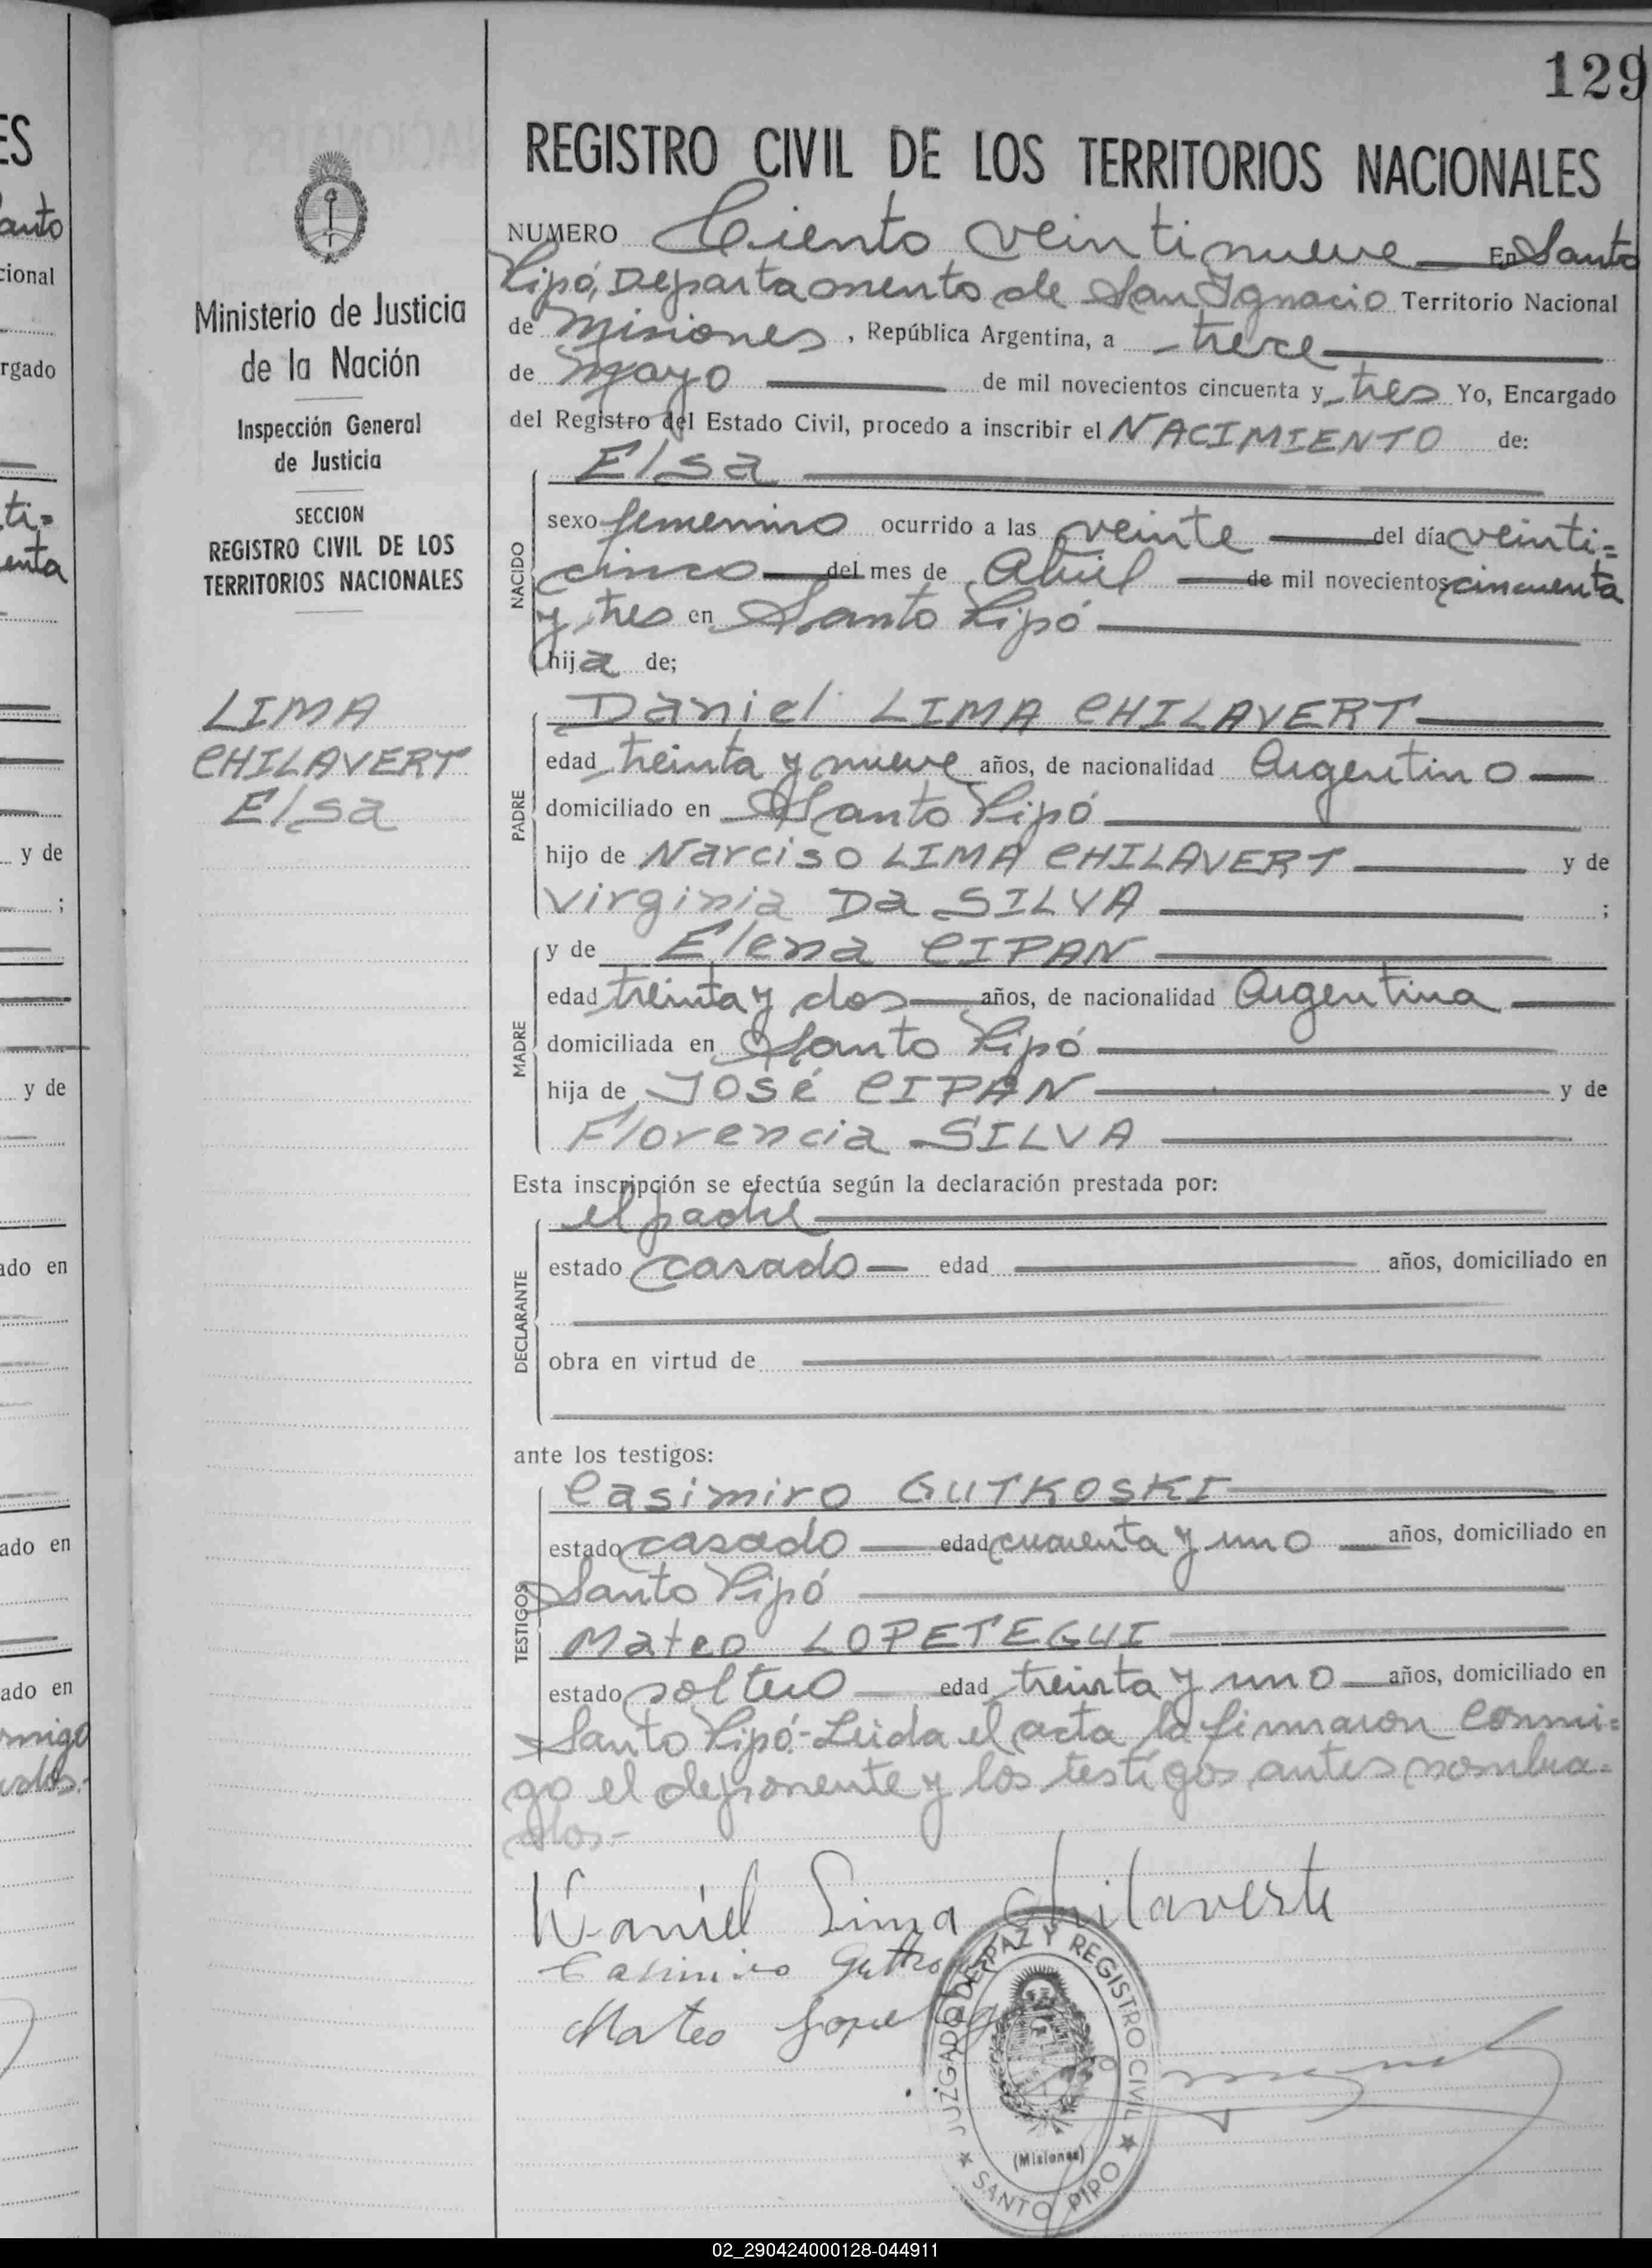 129
REGISTRO CIVIL DE LOS TERRITORIOS NACIONALES
NUMERO Ciento veintinueve En Santo
Pipó, Departamento de San Ignacio Territorio Nacional
de Misiones, República Argentina, a trece
de Mayo de mil novecientos cincuenta y tres Yo, Encargado
del Registro del Estado Civil, procedo a inscribir el NACIMIENTO de:
Elsa
NACIDO
sexo femenino ocurrido a las veinte del día veinti=
cinco del mes de Abril de mil novecientos cincuenta
y tres en Santo Pipó
hija de;
PADRE
Daniel LIMA CHILAVERT
edad treinta y nueve años, de nacionalidad Argentino
domiciliado en Santo Pipó
hijo de Narciso LIMA CHILAVERT y de
Virginia Da SILVA ;
MADRE
y de Elena CIPAN
edad treinta y dos años, de nacionalidad Argentina
domiciliada en Santo Pipó
hija de José CIPAN y de
Florencia SILVA
Esta inscripción se efectúa según la declaración prestada por:
DECLARANTE
el padre
estado casado edad años, domiciliado en
obra en virtud de
ante los testigos:
TESTIGOS
Casimiro GUTKOSKI
estado casado edad cuarenta y uno años, domiciliado en
Santo Pipó
Mateo LOPETEGUI
estado soltero edad treinta y uno años, domiciliado en
Santo Pipó.- Leida el acta la firmaron conmi=
go el deponente y los testigos antes nombra=
dos.-
Daniel Lima Chilaverte
Casimiro
Mateo
JUZGADO DE PAZ Y REGISTRO CIVIL
(Misiones)
SANTO PIPO
Ministerio de Justicia
de la Nación
Inspección General
de Justicia
SECCION
REGISTRO CIVIL DE LOS
TERRITORIOS NACIONALES
LIMA
CHILAVERT
Elsa
ES
anto
cional
rgado
ti=
enta
y de
;
y de
ado en
ado en
ado en
migo
02_290424000128-044911